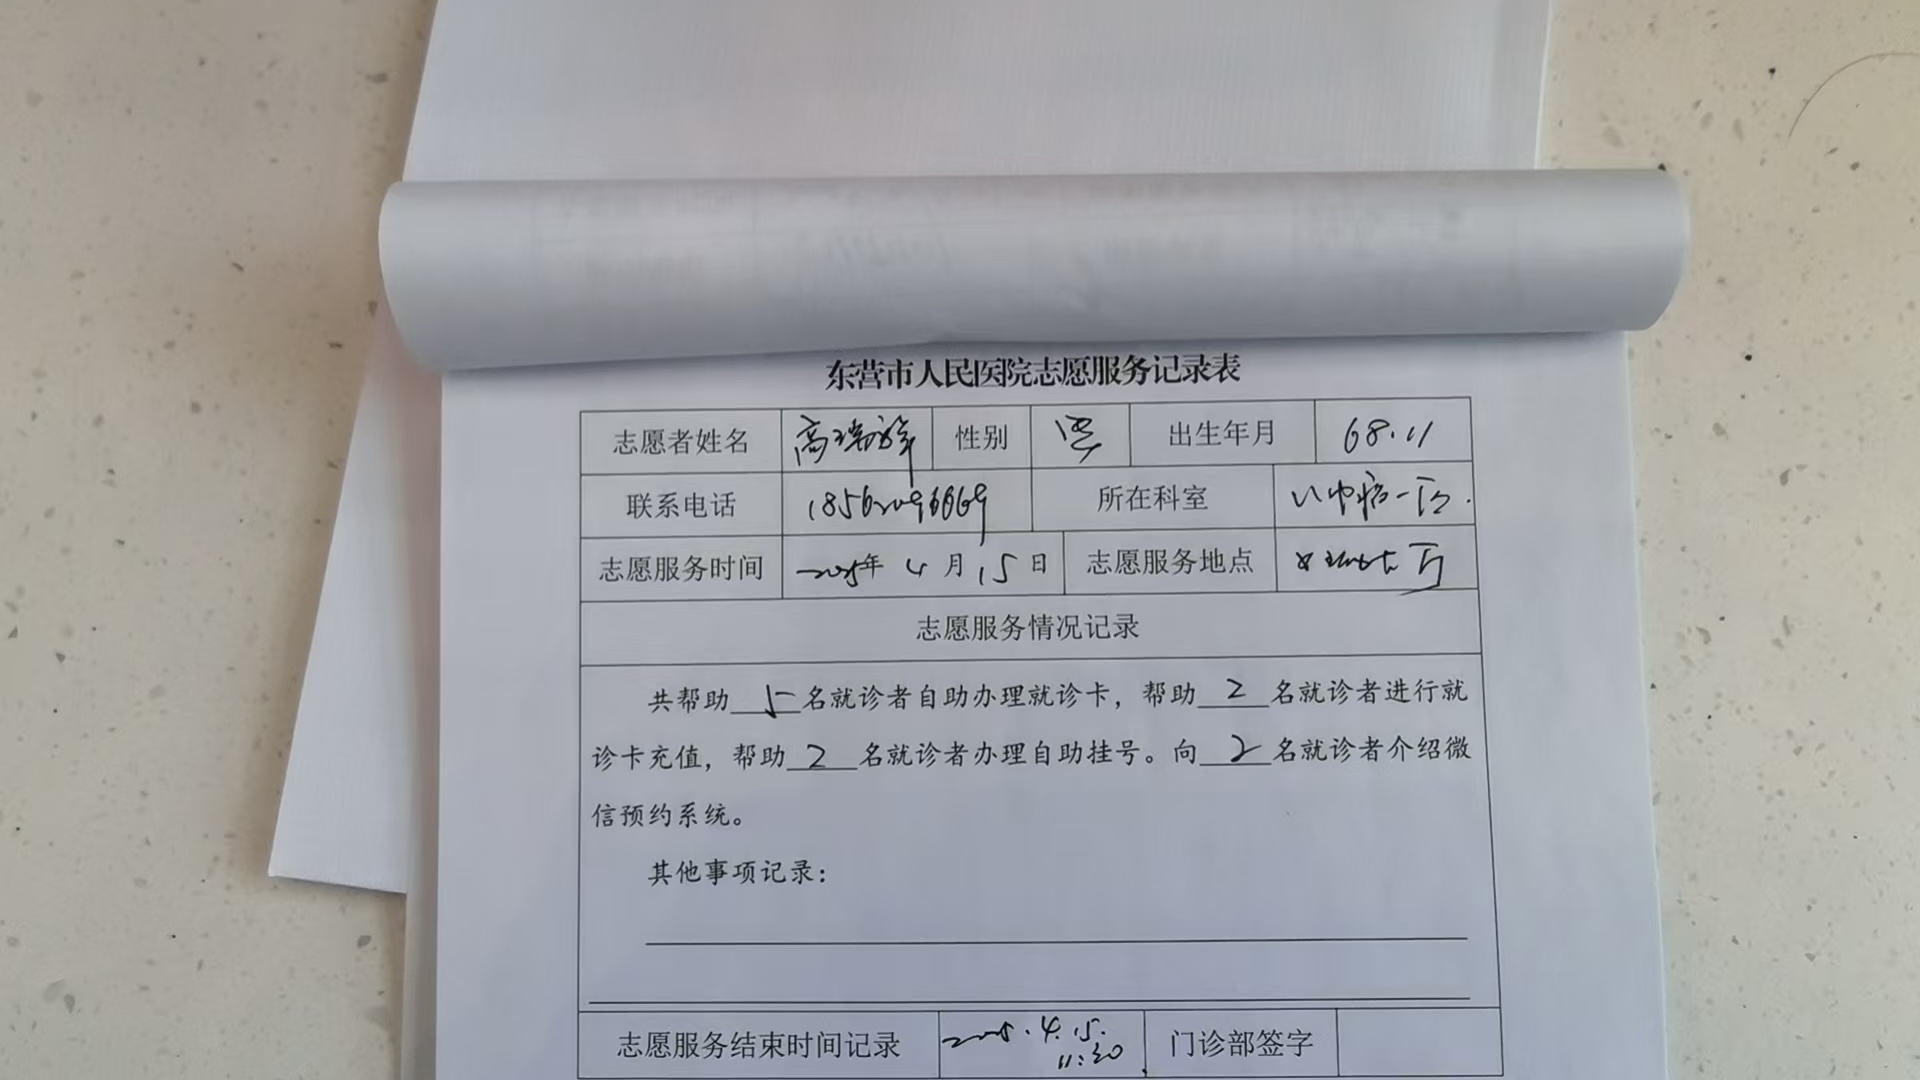 东营市人民医院志愿服务记录表
志愿者姓名 高瑞祥 性别 男 出生年月 68.11
联系电话 18562096869 所在科室
志愿服务时间 2025年 4 月 15 日 志愿服务地点
志愿服务情况记录
共帮助 5 名就诊者自助办理就诊卡，帮助 2 名就诊者进行就
诊卡充值，帮助 2 名就诊者办理自助挂号。向 2 名就诊者介绍微
信预约系统。
其他事项记录：
志愿服务结束时间记录 2025.4.15. 门诊部签字
11:30